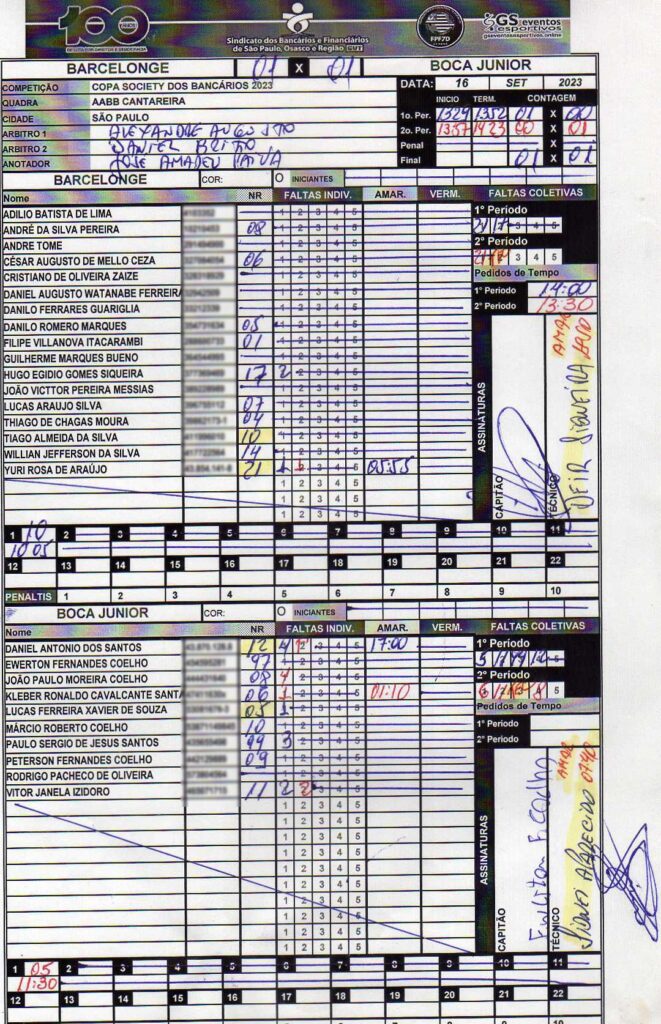 100 ANOS
DE LUTA POR DIREITOS E DEMOCRACIA
Sindicato dos Bancários e Financiários
de São Paulo, Osasco e Região CUT
FPF7D
GS eventos
esportivos
gseventosesportivos.online
BARCELONGE 01 X 01 BOCA JUNIOR
COMPETIÇÃO COPA SOCIETY DOS BANCÁRIOS 2023
QUADRA AABB CANTAREIRA
CIDADE SÃO PAULO
ARBITRO 1 ALEXANDRE AUGUSTO
ARBITRO 2 DANIEL BRITO
ANOTADOR JOSE AMADEU
DATA: 16 SET 2023
INICIO TERM. CONTAGEM
1o. Per. 1329 1352 01 X 00
2o. Per. 13:57 1423 00 X 01
Penal X
Final 01 X 01
BARCELONGE COR: O INICIANTES
Nome NR FALTAS INDIV. AMAR. VERM. FALTAS COLETIVAS
ADILIO BATISTA DE LIMA 1 2 3 4 5
ANDRÉ DA SILVA PEREIRA 08 1 2 3 4 5
ANDRE TOME 1 2 3 4 5
CÉSAR AUGUSTO DE MELLO CEZA 06 1 2 3 4 5
CRISTIANO DE OLIVEIRA ZAIZE 1 2 3 4 5
DANIEL AUGUSTO WATANABE FERREIRA 1 2 3 4 5
DANILO FERRARES GUARIGLIA 1 2 3 4 5
DANILO ROMERO MARQUES 05 1 2 3 4 5
FILIPE VILLANOVA ITACARAMBI 01 1 2 3 4 5
GUILHERME MARQUES BUENO 1 2 3 4 5
HUGO EGIDIO GOMES SIQUEIRA 17 2 2 3 4 5
JOÃO VICTTOR PEREIRA MESSIAS 1 2 3 4 5
LUCAS ARAUJO SILVA 07 1 2 3 4 5
THIAGO DE CHAGAS MOURA 04 1 2 3 4 5
TIAGO ALMEIDA DA SILVA 10 1 2 3 4 5
WILLIAN JEFFERSON DA SILVA 14 1 2 3 4 5
YURI ROSA DE ARAÚJO 21 1 2 3 4 5 05:55
1 2 3 4 5
1 2 3 4 5
1 2 3 4 5
1º Periodo
2º Periodo
3 4 5
Pedidos de Tempo
1º Periodo 14:00
2º Periodo 13:30
ASSINATURAS
CAPITÃO
TÉCNICO
SIQUEIRA
1 10 2 3 4 5 6 7 8 9 10 11
10 05
12 13 14 15 16 17 18 19 20 21 22
PENALTIS 1 2 3 4 5 6 7 8 9 10
BOCA JUNIOR COR: O INICIANTES
Nome NR FALTAS INDIV. AMAR. VERM. FALTAS COLETIVAS
DANIEL ANTONIO DOS SANTOS 12 3 4 5 17:00
EWERTON FERNANDES COELHO 97 1 2 3 4 5
JOÃO PAULO MOREIRA COELHO 08 2 3 4 5
KLEBER RONALDO CAVALCANTE SANTA 06 2 3 4 5 01:10
LUCAS FERREIRA XAVIER DE SOUZA 05 1 2 3 4 5
MÁRCIO ROBERTO COELHO 10 1 2 3 4 5
PAULO SERGIO DE JESUS SANTOS 99 3 2 3 4 5
PETERSON FERNANDES COELHO 09 1 2 3 4 5
RODRIGO PACHECO DE OLIVEIRA 1 2 3 4 5
VITOR JANELA IZIDORO 11 2 2 3 4 5
1 2 3 4 5
1 2 3 4 5
1 2 3 4 5
1 2 3 4 5
1 2 3 4 5
1 2 3 4 5
1 2 3 4 5
1 2 3 4 5
1 2 3 4 5
1º Periodo
2º Periodo
Pedidos de Tempo
1º Periodo
2º Periodo
ASSINATURAS
CAPITÃO
TÉCNICO
APARECIDO 07:40
1 05 2 3 4 5 6 7 8 9 10 11
11:30
12 13 14 15 16 17 18 19 20 21 22